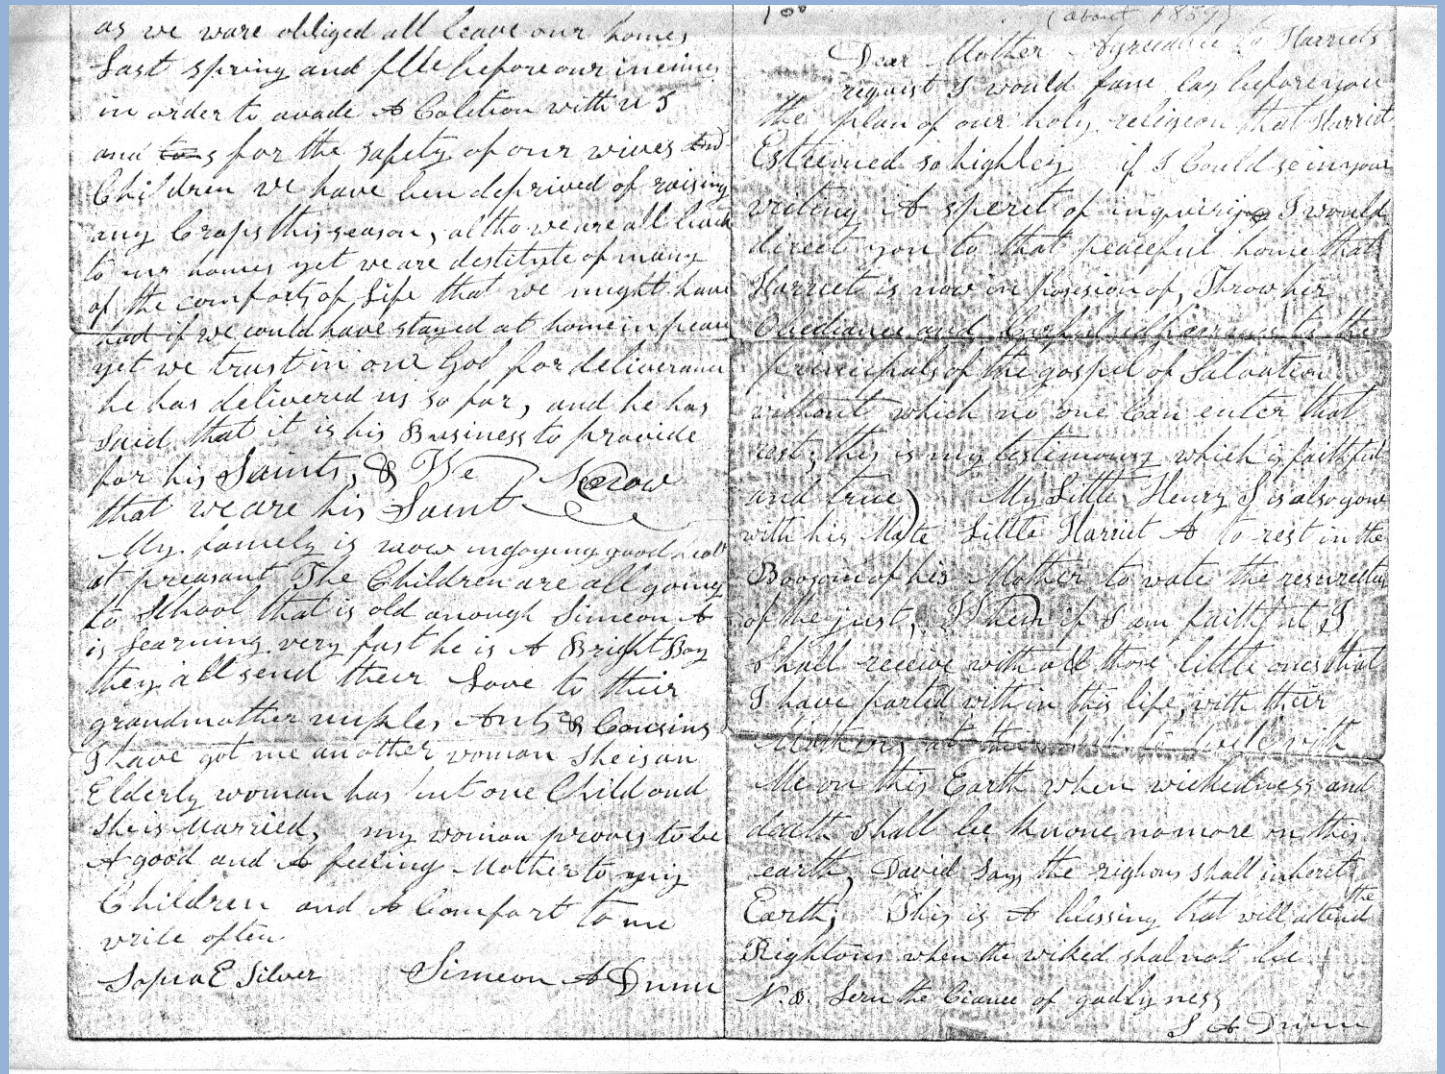 as we ware obliged all leave our homes
Last spring and flle before our inemies
in order to avade A Colition with U S
and for the safety of our wives And
Children we have ben deprived of raising
any Crops this season, altho we are all back
to our homes yet we are destitute of many
of the comforts of Life that we might have
had if we could have stayed at home in peace
yet we trust in our God for deliverance
he has delivered us so far, and he has
Said that it is his Business to provide
for his Saints, & We Know
that we are his Saint
My famely is now injoying good
at preasant The Children are all going
to School that is old anough Simeon A
is learning very fast he is A Bright Boy
they all send their Love to their
grandmother unkles Ants & Cousins
I have got me another woman She is an
Elderly woman has but one Child and
She is Married, my woman proves to be
A good and A feeling Mother to my
Children and A Comfort to me
write often
E Silver Simeon A Dunn
100 (about 1859)
Dear Mother Agreeable to Harriets
request I would fane lay before you
the plan of our holy religeon that Harriet
Esteemed so highley if I Could se in your
writing A sperit of inquiry I would
direct you to that peaceful home that
Harriet is now in Posision of, Throw her
Obediance and to the
principals of the gospel of Salvation
without which no one Can enter that
rest; this is my testimony which is faithful
and true) My Little Henry S is also gone
with his Mate Little Harriet A to rest in the
Boosom of his Mother to wate the resurection
of the just, When if I am faithful I
Shall receive with all those little ones that
I have parted with in this life, with their
Mothers with
Me on this Earth when wickedness and
death Shall be knone no more on this
earth, David Says the righous shall inherit
the
Earth; This is A blessing that will attend
Rightous when the wiked shal not be
N.B. Lern the of godlyness
S A Dunn